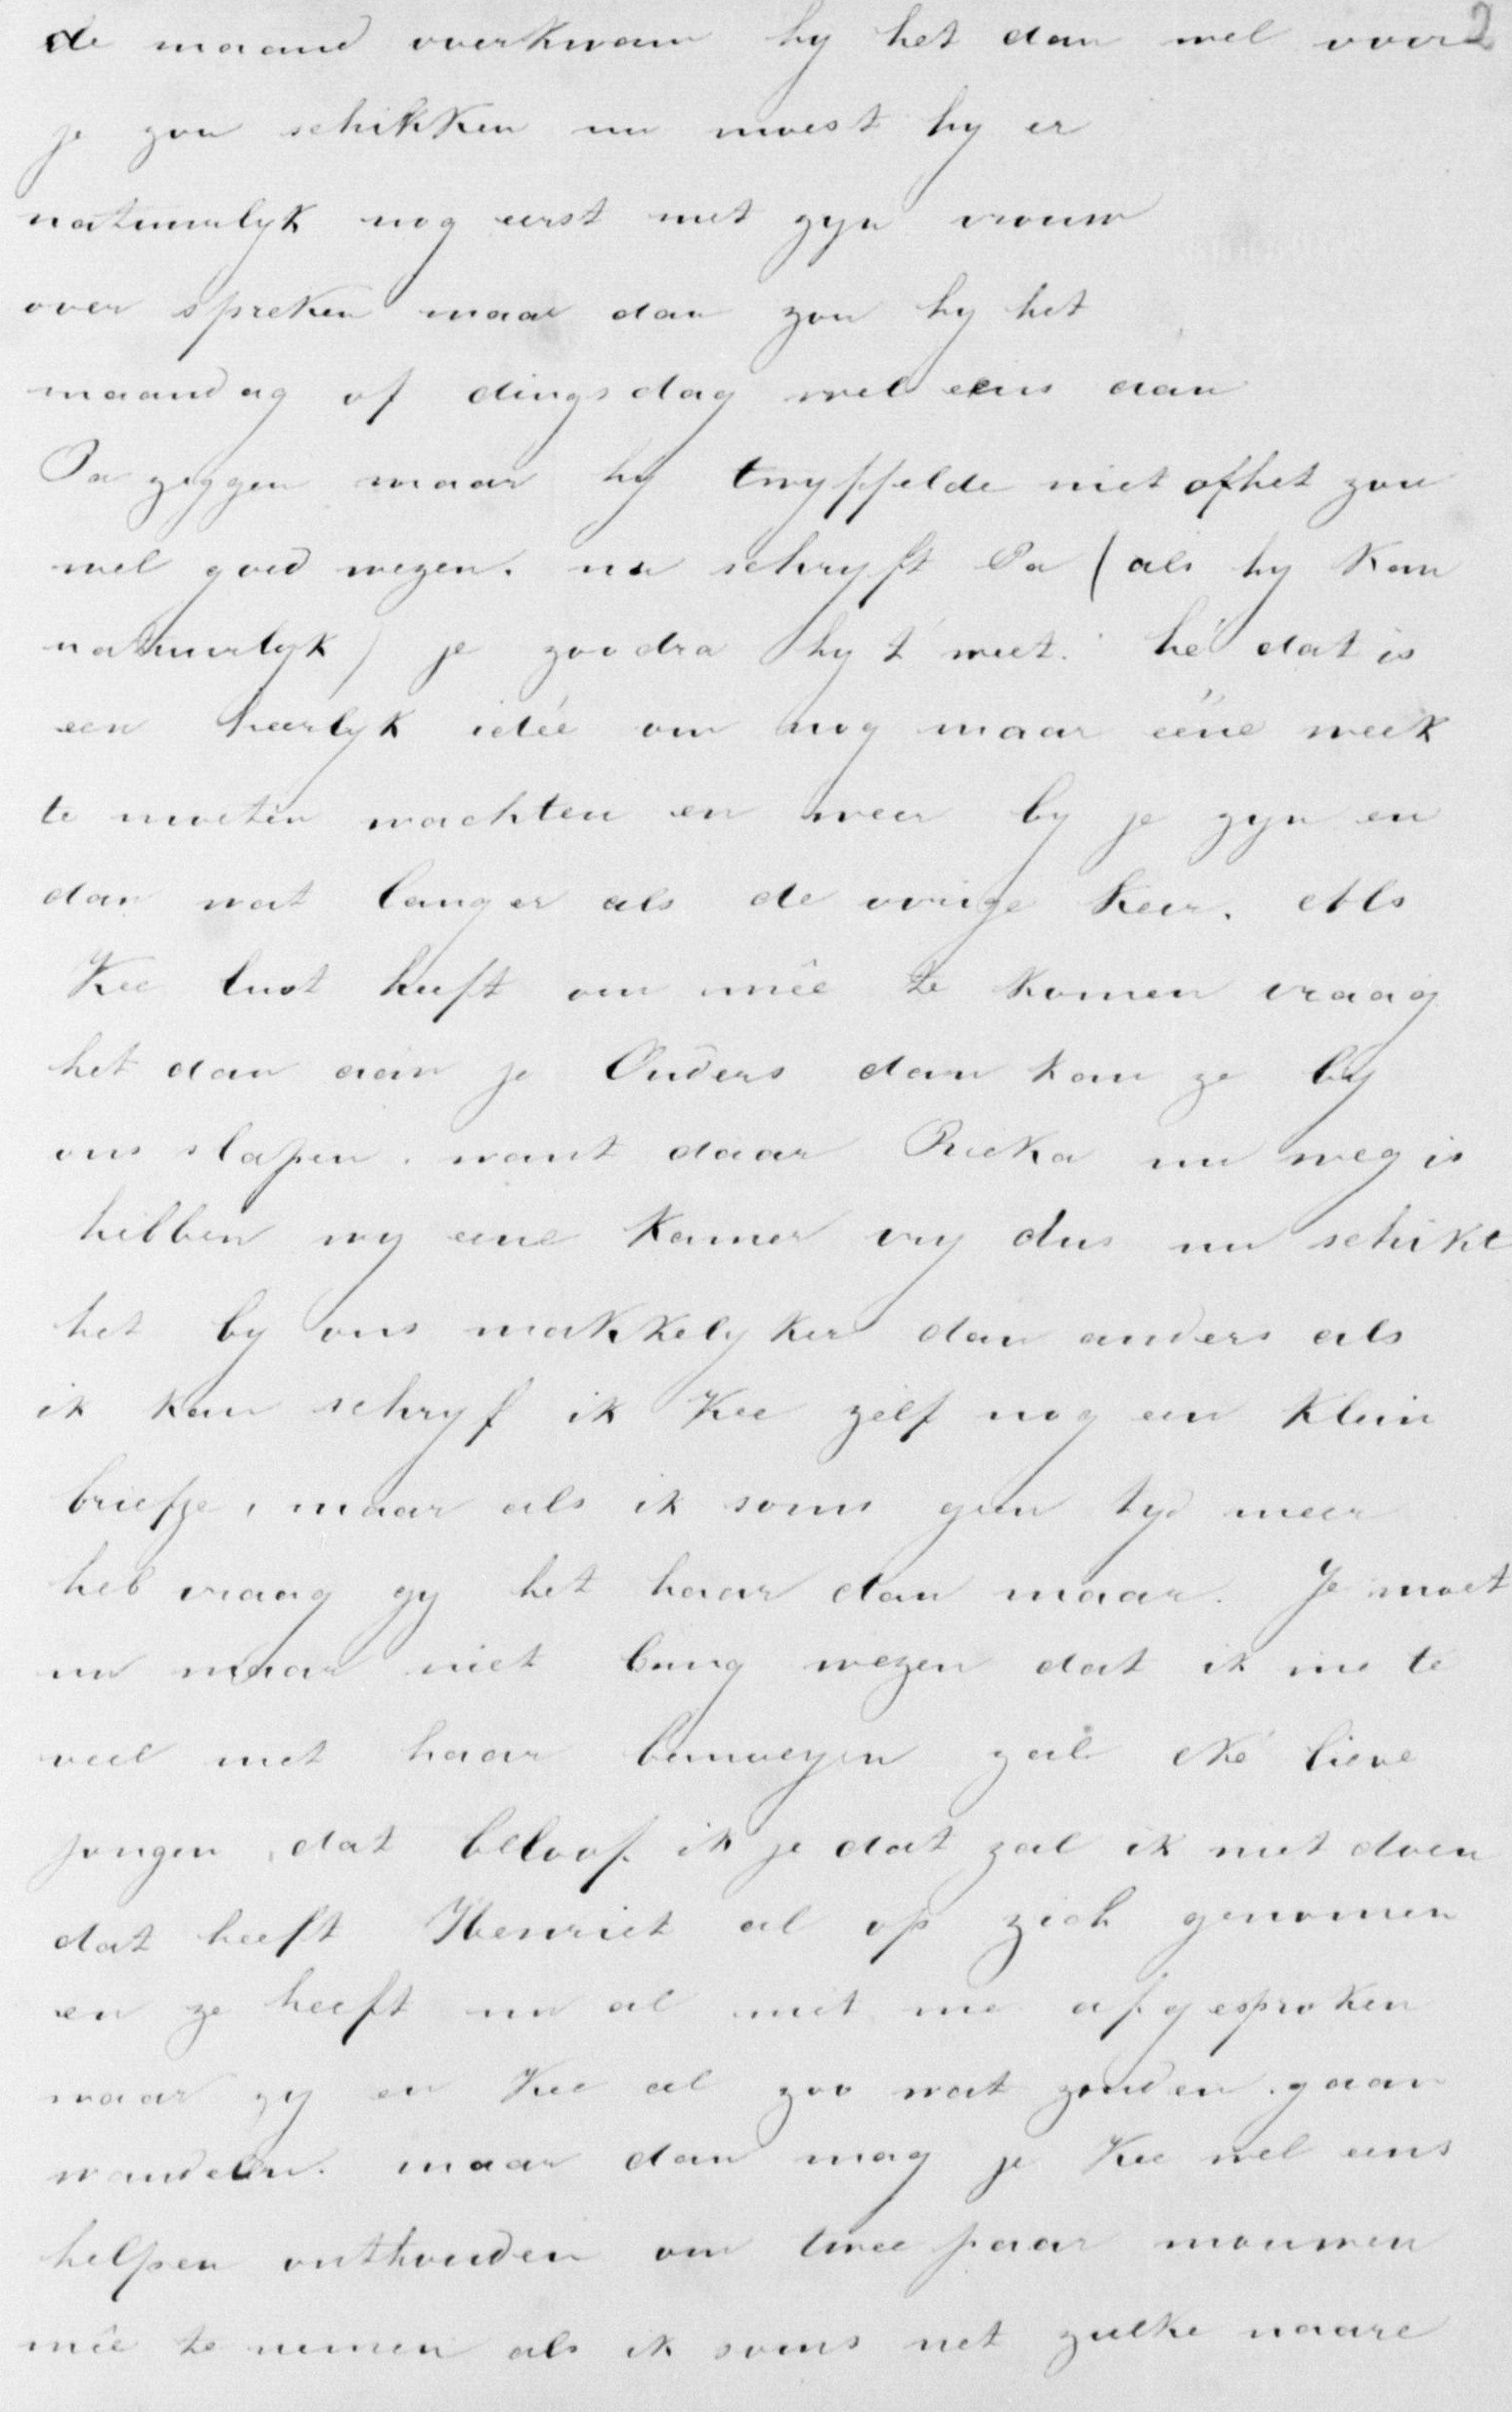 de maand overkwam hy het dan wel voor 2
je zou schikken nu moest hy er
natuurlyk nog eerst met zyn vrouw
over spreken maar dan zou hy het
maandag of dingsdag wel eens aan
Pa zeggen maar hy twyffelde niet of het zou
wel goed wezen. nu schryft Pa (als hy kan
natuurlyk) je zoodra hy 't weet. hé dat is
een heerlyk idée om nog maar ééne week
te moeten wachten en weer by je zyn en
dan wat langer als de vorige keer. Als
Kee lust heeft om mêe te komen vraag
het dan aan je Ouders dan kan ze by
ons slapen. want daar Rieka nu weg is
hebben wy eene kamer vry dus nu schikt
het by ons makkelyker dan anders als
ik kan schryf ik Kee zelf nog een klein
briefje, maar als ik soms geen tyd meer
heb vraag gy het haar dan maar. Je moet
nu maar niet bang wezen dat ik me te
veel met haar bemoeyen zal Né lieve
jongen, dat beloof ik je dat zal ik niet doen
dat heeft Henriet al op zich genomen
en ze heeft nu al met me afgesproken
waar zy en Kee al zoo wat zouden gaan
wandelen. maar dan mag je Kee wel eens
helpen onthouden om twee paar mouwen
mêe te nemen als ik soms net zulke naare